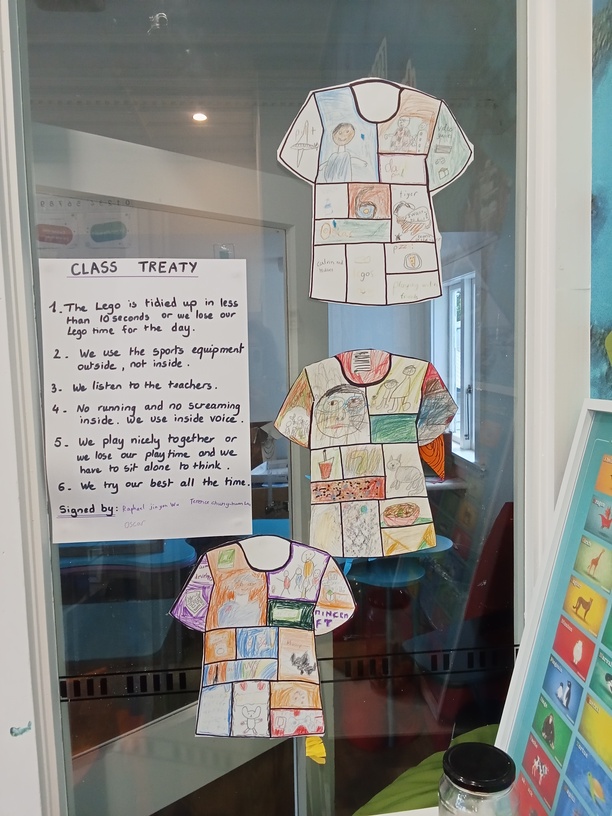 CLASS TREATY
1. The Lego is tidied up in less
than 10 seconds or we lose our
Lego time for the day.
2- We use the sports equipment
outside, not inside.
3- We listen to the teachers.
4- No running and no screaming
inside. We use inside voice.
5- We play nicely together or
we lose our playtime and we
have to sit alone to think.
6- We try our best all the time.
Signed by: Raphael
OSCAR
tiger